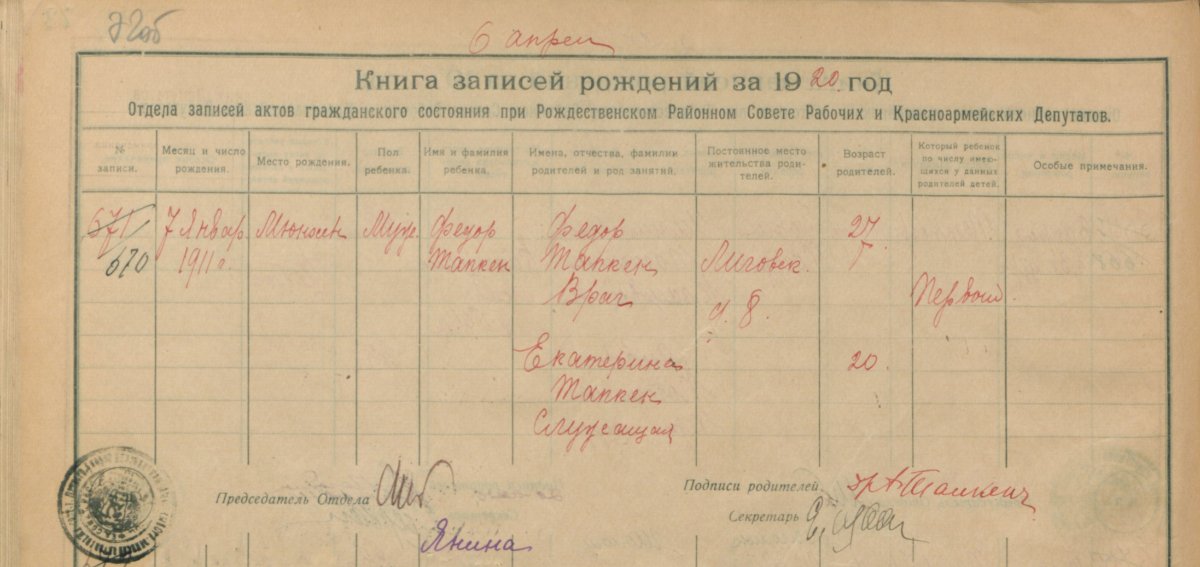 726
6 апрел
Книга записей рождений за 1920 год
Отдела записей актов гражданского состояния при Рождественском Районном Совете Рабочих и Красноармейских Депутатов.
№ записи.
Месяц и число рождения.
Место рождения.
Пол ребенка.
Имя и фамилия ребенка.
Имена, отчества, фамилии родителей и род занятий.
Постоянное место жительства родителей.
Возраст родителей.
Который ребенок по числу имеющихся у данных родителей детей.
Особые примечания.
671 7 Январ Мюнхен Муж. Федор Федор 27
670 1911 г. Таккен Таккен Лиговск. г
Врач д. 8. Первый
Екатерина 20
Таккен
Служащая
Председатель Отдела
Подписи родителей.
Секретарь
Янина